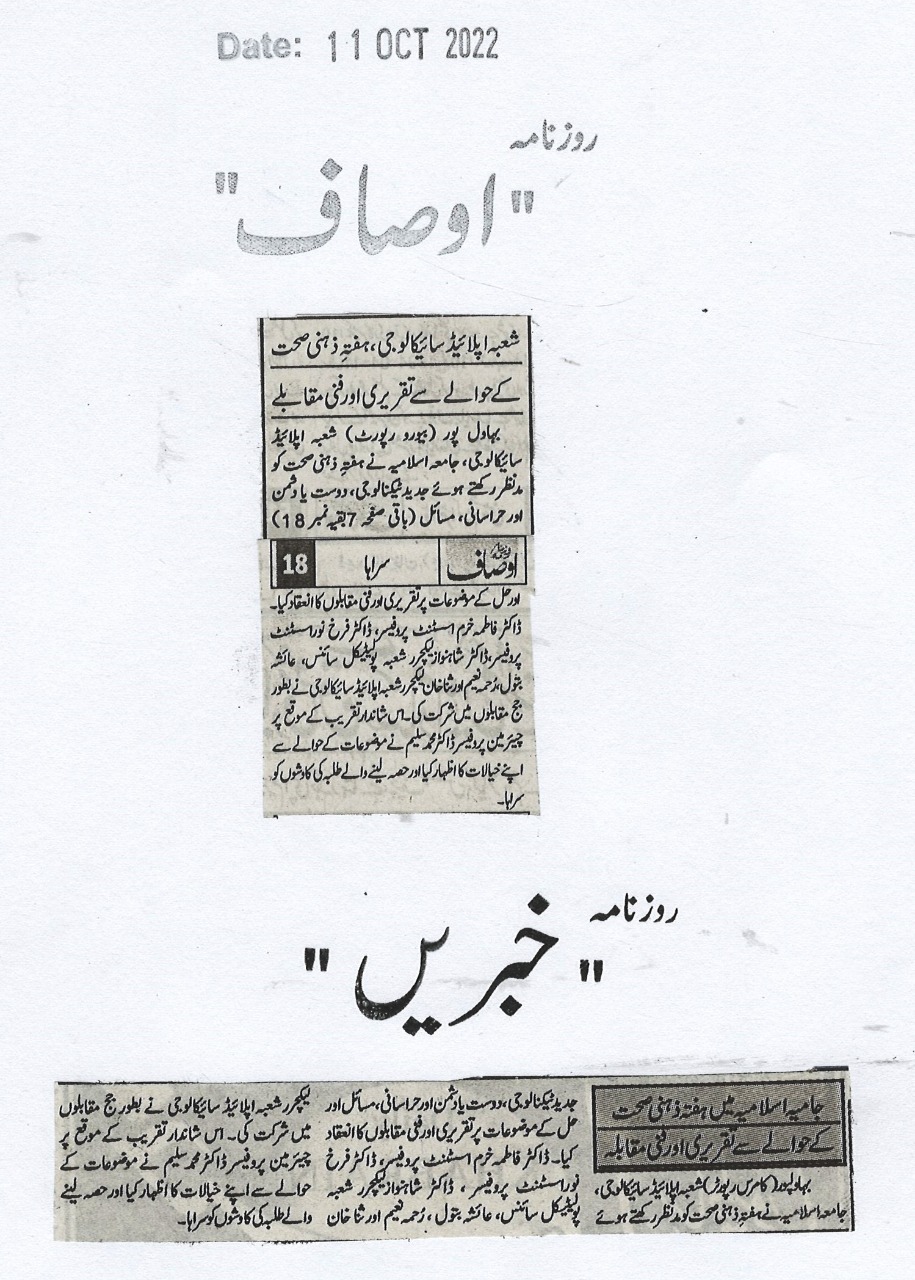 Date: 11 OCT 2022
روزنامہ
"اوصاف"
شعبہ اپلائیڈ سائیکالوجی، ہفتۂ ذہنی صحت
کے حوالے سے تقریری اور فنی مقابلے
بہاول پور (بیورو رپورٹ) شعبہ اپلائیڈ
سائیکالوجی، جامعہ اسلامیہ نے ہفتۂ ذہنی صحت کو
مدنظر رکھتے ہوئے جدید ٹیکنالوجی، دوست یا دشمن
اور حراسانی، مسائل (باقی صفحہ 7 بقیہ نمبر 18)
اوصاف سراہا 18
اور حل کے موضوعات پر تقریری اور فنی مقابلوں کا انعقاد کیا۔
ڈاکٹر فاطمہ خرم اسسٹنٹ پروفیسر، ڈاکٹر فرخ نور اسسٹنٹ
پروفیسر، ڈاکٹر شاہنواز لیکچرر شعبہ پولیٹیکل سائنس، عائشہ
بتول، رُحمہ نعیم اور ثنا خان لیکچرر شعبہ اپلائیڈ سائیکالوجی نے بطور
جج مقابلوں میں شرکت کی۔ اس شاندار تقریب کے موقع پر
چیئرمین پروفیسر ڈاکٹر محمد سلیم نے موضوعات کے حوالے سے
اپنے خیالات کا اظہار کیا اور حصہ لینے والے طلبہ کی کاوشوں کو
سراہا۔
روزنامہ
"خبریں"
جامعہ اسلامیہ میں ہفتۂ ذہنی صحت
کے حوالے سے تقریری اور فنی مقابلہ
بہاولپور (کامرس رپورٹر) شعبہ اپلائیڈ سائیکالوجی،
جامعہ اسلامیہ نے ہفتۂ ذہنی صحت کو مدنظر رکھتے ہوئے
جدید ٹیکنالوجی، دوست یا دشمن اور حراسانی، مسائل اور
حل کے موضوعات پر تقریری اور فنی مقابلوں کا انعقاد
کیا۔ ڈاکٹر فاطمہ خرم اسسٹنٹ پروفیسر، ڈاکٹر فرخ
نور اسسٹنٹ پروفیسر، ڈاکٹر شاہنواز لیکچرر شعبہ
پولیٹیکل سائنس، عائشہ بتول، رُحمہ نعیم اور ثنا خان
لیکچرر شعبہ اپلائیڈ سائیکالوجی نے بطور جج مقابلوں
میں شرکت کی۔ اس شاندار تقریب کے موقع پر
چیئرمین پروفیسر ڈاکٹر محمد سلیم نے موضوعات کے
حوالے سے اپنے خیالات کا اظہار کیا اور حصہ لینے
والے طلبہ کی کاوشوں کو سراہا۔